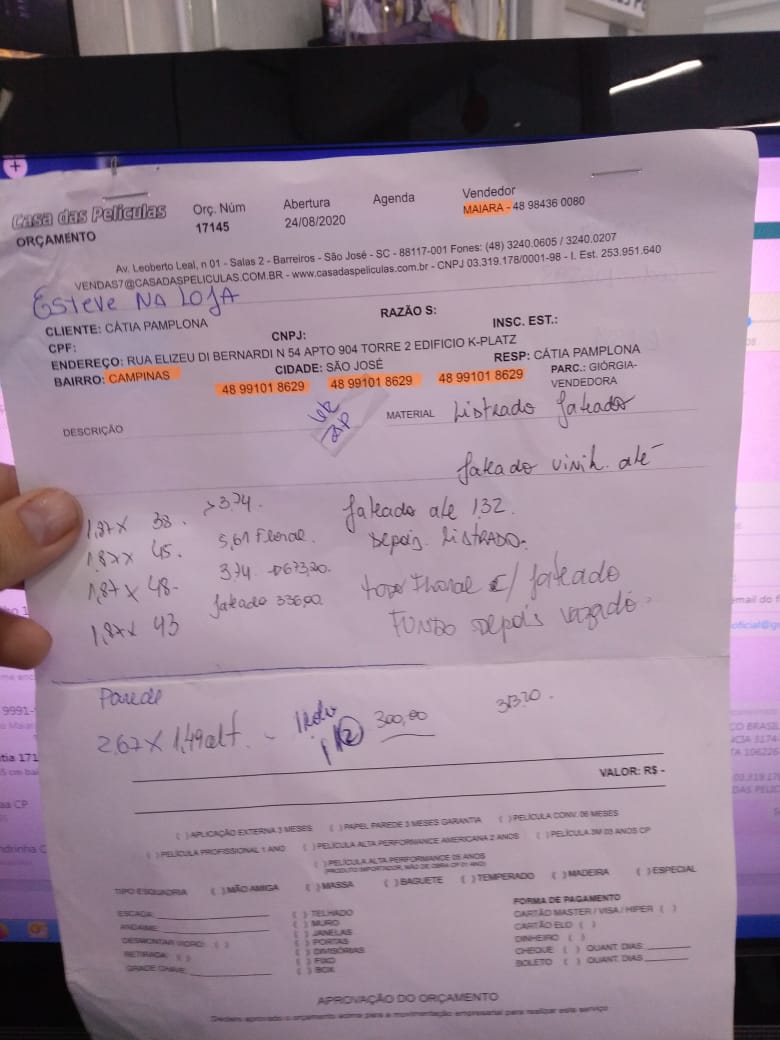 Casa das Películas Orç. Núm Abertura Agenda Vendedor
ORÇAMENTO 17145 24/08/2020 MAIARA - 48 98436 0080
Av. Leoberto Leal, n 01 - Salas 2 - Barreiros - São José - SC - 88117-001 Fones: (48) 3240.0605 / 3240.0207
VENDAS7@CASADASPELICULAS.COM.BR - www.casadaspeliculas.com.br - CNPJ 03.319.178/0001-98 - I. Est. 253.951.640
ESTEVE NA LOJA
CLIENTE: CÁTIA PAMPLONA RAZÃO S:
CPF: CNPJ: INSC. EST.:
ENDEREÇO: RUA ELIZEU DI BERNARDI N 54 APTO 904 TORRE 2 EDIFICIO K-PLATZ
BAIRRO: CAMPINAS CIDADE: SÃO JOSÉ RESP: CÁTIA PAMPLONA
48 99101 8629 48 99101 8629 48 99101 8629 PARC.: GIÓRGIA-
VENDEDORA
DESCRIÇÃO MATERIAL Listrado Jateado
Jateado até
1,87 x 38. 3,74. Jateado ate 1,32.
1,87 x 45. 5,61 Floral. Depois LISTRADO.
1,87 x 48- 3,74 673,20.
1,87 x 43 Jateado 336,00 Floral c/ Jateado
FUNDO Depois vazado.
Parede
2,67 x 1,49 alt. - 1 Rolo 300,00 313,20.
VALOR: R$ -
( ) APLICAÇÃO EXTERNA 3 MESES ( ) PAPEL PAREDE 3 MESES GARANTIA ( ) PELÍCULA CONV. 06 MESES
( ) PELÍCULA PROFISSIONAL 1 ANO ( ) PELÍCULA ALTA PERFORMANCE AMERICANA 2 ANOS ( ) PELÍCULA 3M 03 ANOS CP
( ) PELÍCULA ALTA PERFORMANCE 05 ANOS
TIPO ESQUADRIA ( ) MÃO AMIGA ( ) MASSA ( ) BAGUETE ( ) TEMPERADO ( ) MADEIRA ( ) ESPECIAL
ESCADA: ( ) TELHADO FORMA DE PAGAMENTO
ANDAIME: ( ) MURO CARTÃO MASTER / VISA / HIPER ( )
DESMONTAR VIDRO: ( ) ( ) JANELAS CARTÃO ELO ( )
RETIRADA: ( ) ( ) PORTAS DINHEIRO ( )
( ) DIVISÓRIAS CHEQUE ( ) QUANT. DIAS
( ) FIXO BOLETO ( ) QUANT. DIAS
( ) BOX
APROVAÇÃO DO ORÇAMENTO
Declaro aprovado o orçamento acima para a movimentação empresarial para realizar este serviço